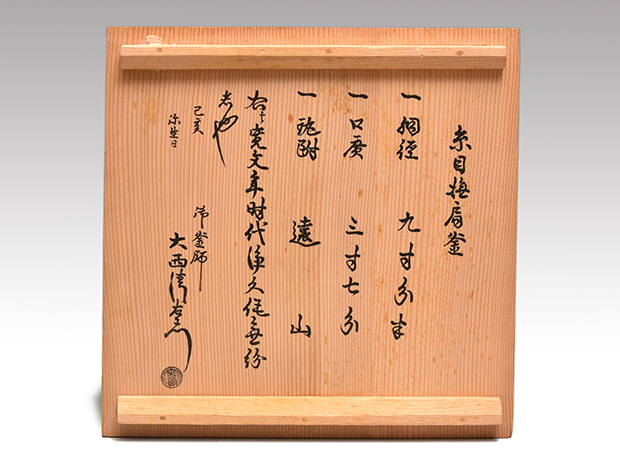 糸目撫肩釜
一 胴径 九寸分半
一 口廣 三寸七分
一 鐶附 遠山
右ハ寛文年時代浄久作無紛
者也
己亥
弥生日
御釜師
大西清右衛門